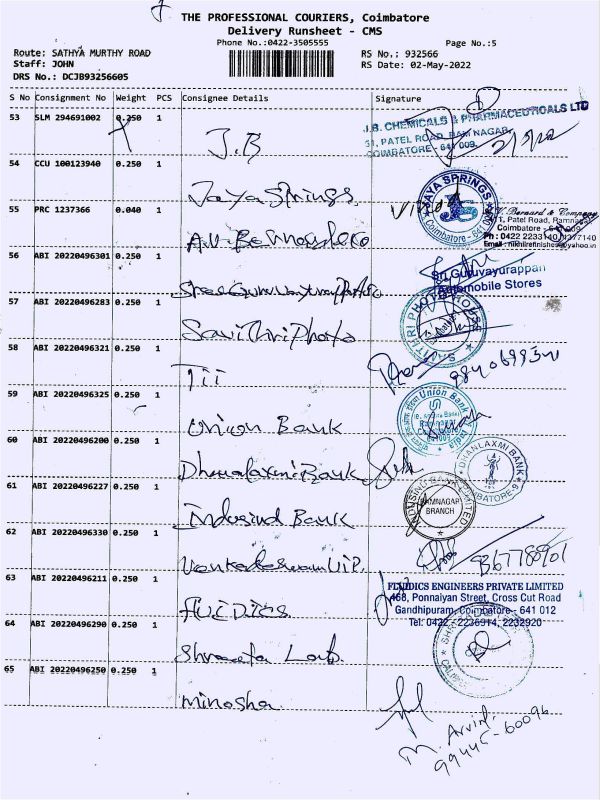 THE PROFESSIONAL COURIERS, Coimbatore
Delivery Runsheet - CMS
Phone No.:0422-3505555
Page No.:5
Route: SATHYA MURTHY ROAD
RS No.: 932566
Staff: JOHN
RS Date: 02-May-2022
DRS No.: DCJB93256605
S No Consignment No Weight PCS Consignee Details Signature
53 SLM 294691002 0.250 1
J.B
J.B. CHEMICALS & PHARMACEUTICALS LTD
31, PATEL ROAD, RAM NAGAR,
COIMBATORE - 641 009.
54 CCU 100123940 0.250 1
Jaya Springs
JAYA SPRINGS
Coimbatore - 641 009
55 PRC 1237366 0.040 1
A.V. Bernard & Company
Patel Road, Ramnagar
Coimbatore - 641 009
Ph : 0422 2233140
56 ABI 20220496301 0.250 1
Sri Guruvayurappan
Automobile Stores
57 ABI 20220496283 0.250 1
Savithri Photo
SAVITHRI PHOTO HOUSE
58 ABI 20220496321 0.250 1
TII
59 ABI 20220496325 0.250 1
Union Bank
Union Bank
60 ABI 20220496200 0.250 1
Dhanalaxmi Bank
DHANLAXMI BANK
COIMBATORE-9
61 ABI 20220496227 0.250 1
Indusind Bank
INDUSIND BANK LIMITED
RAMNAGAR
BRANCH
62 ABI 20220496330 0.250 1
63 ABI 20220496211 0.250 1
fluidics
FLUIDICS ENGINEERS PRIVATE LIMITED
468, Ponnaiyan Street, Cross Cut Road
Gandhipuram, Coimbatore - 641 012
Tel: 0422 - 2236914, 2232920
64 ABI 20220496290 0.250 1
65 ABI 20220496250 0.250 1
minosha
M. Arvind
99445-60096